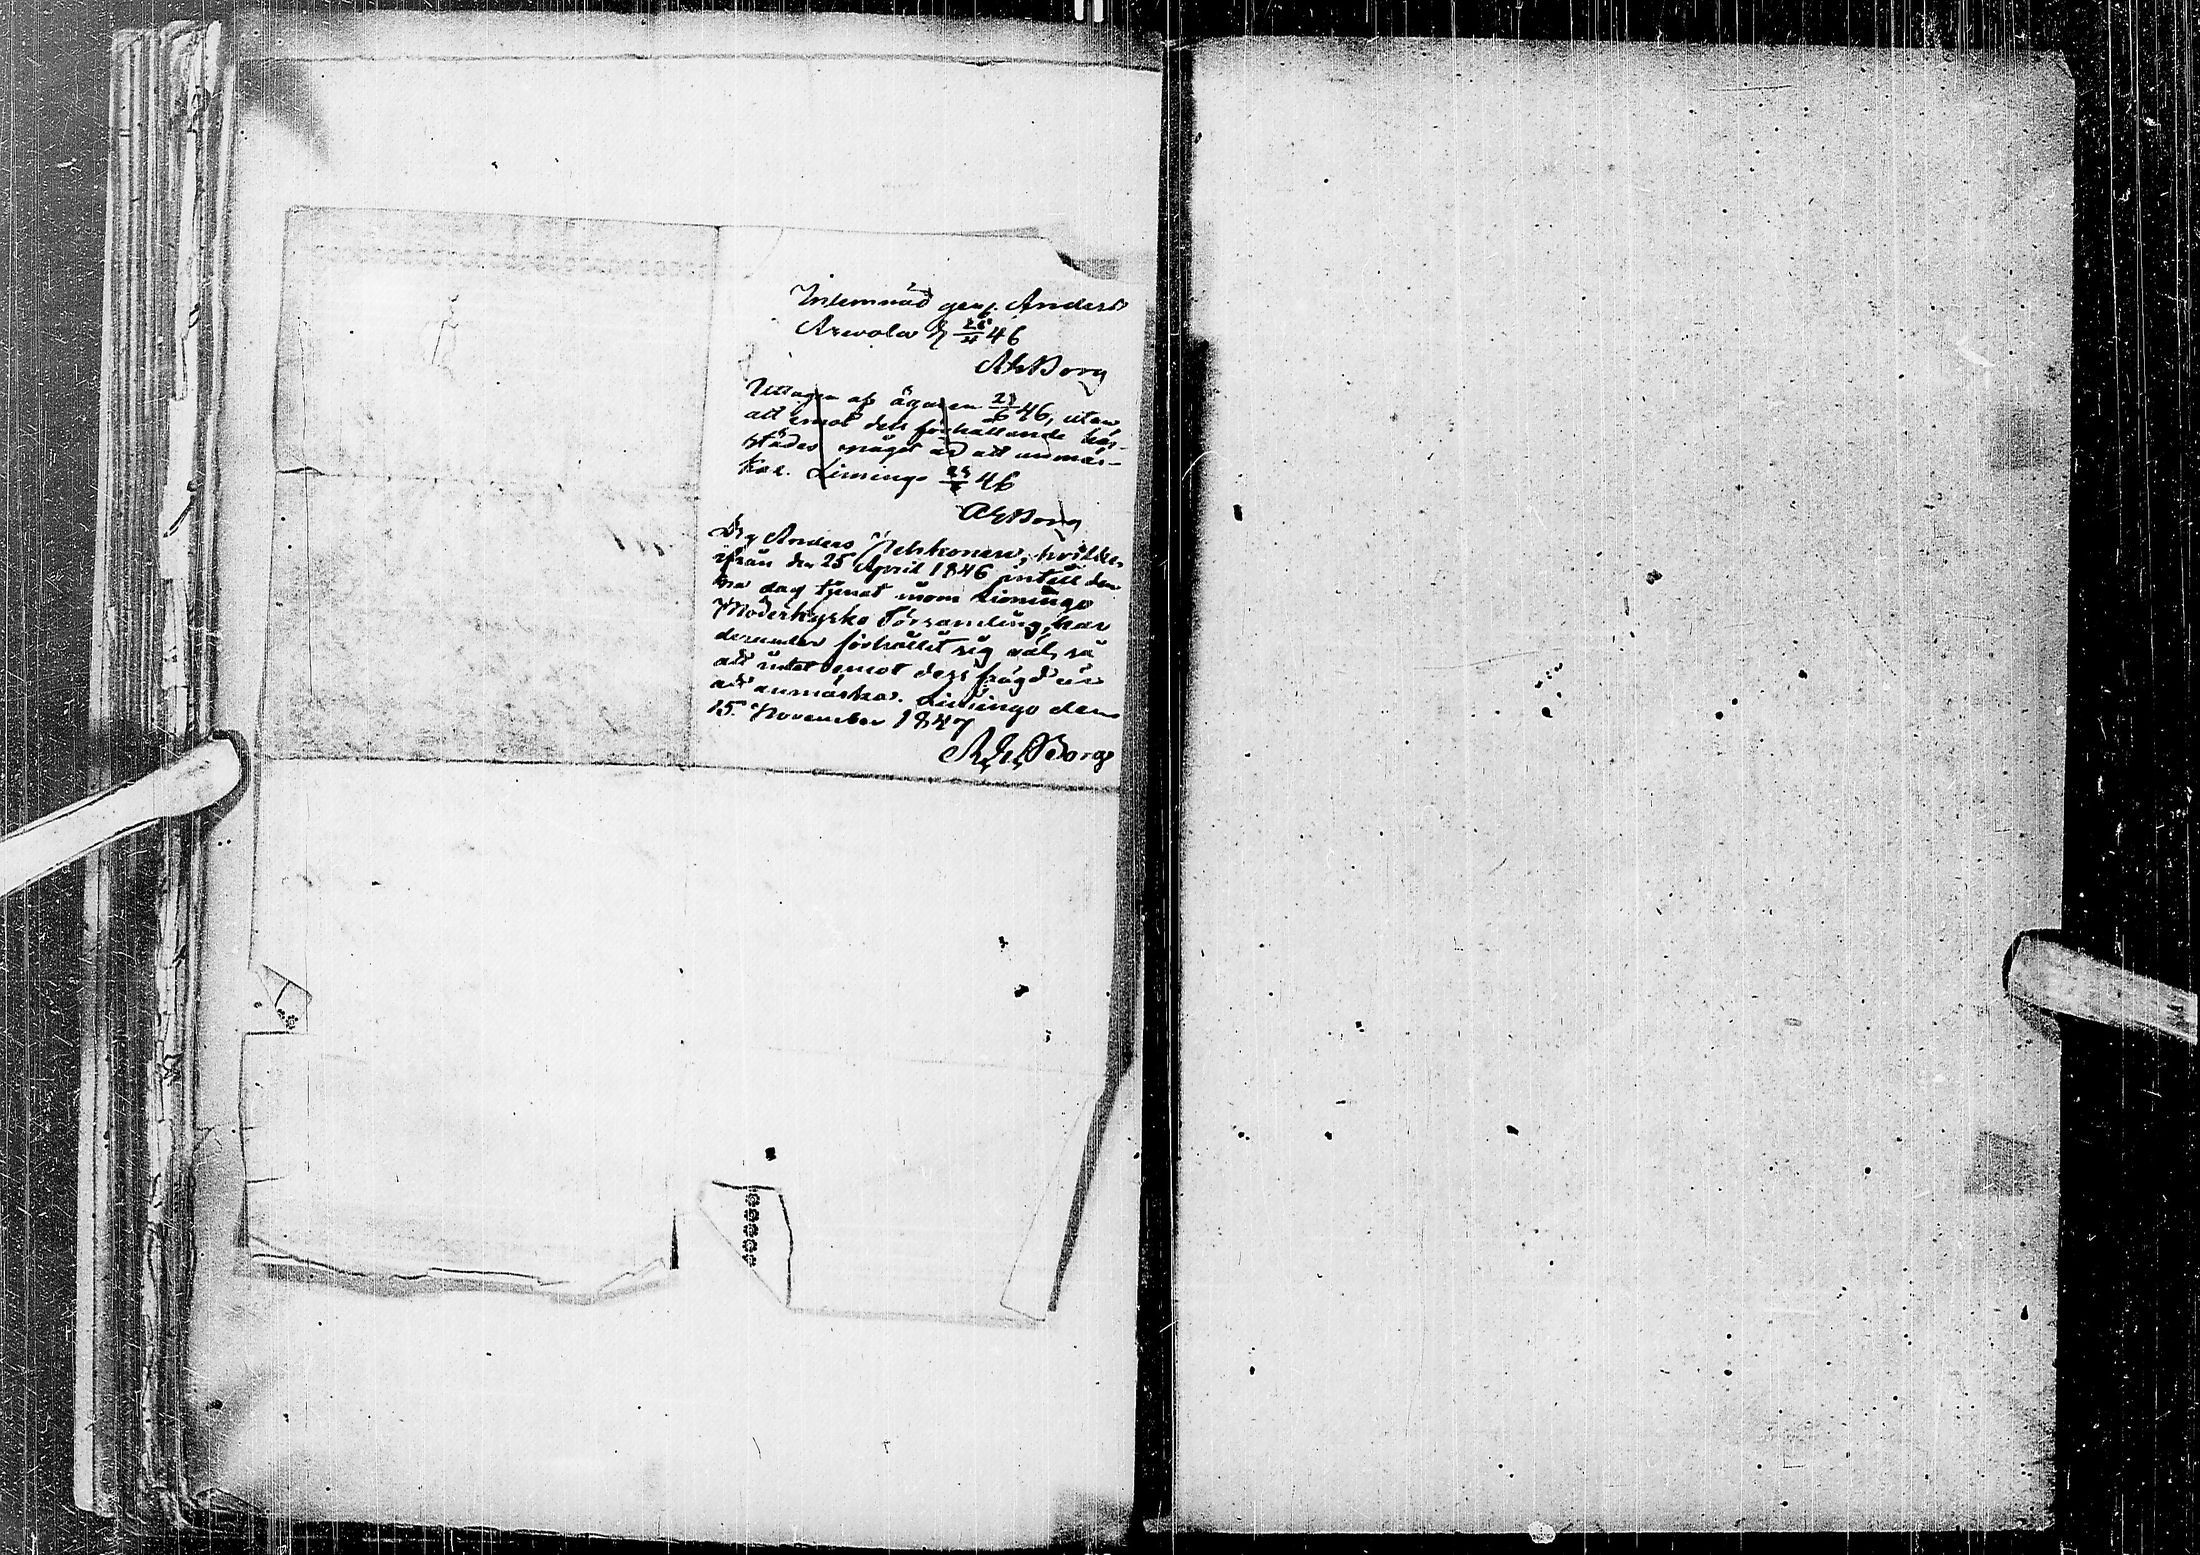 Inlemnad genf. Anders
Arwola d 25/4 46
AEBorg
Uttagen af ägaren 23/6 46, utan
att emot dess förhållande här-
städes något är att anmär-
ka. Limingo 23/6 46
AEBorg
Drg Anders Pehkonen, hvilken
ifrån den 25 April 1846 intill den-
na dag tjenat inom Limingo
Moderkyrko Församling, har
derunder förhållit sig väl, så
att intet emot dess frägd är
att anmärka. Limingo den
15 November 1847
A. E. Borg